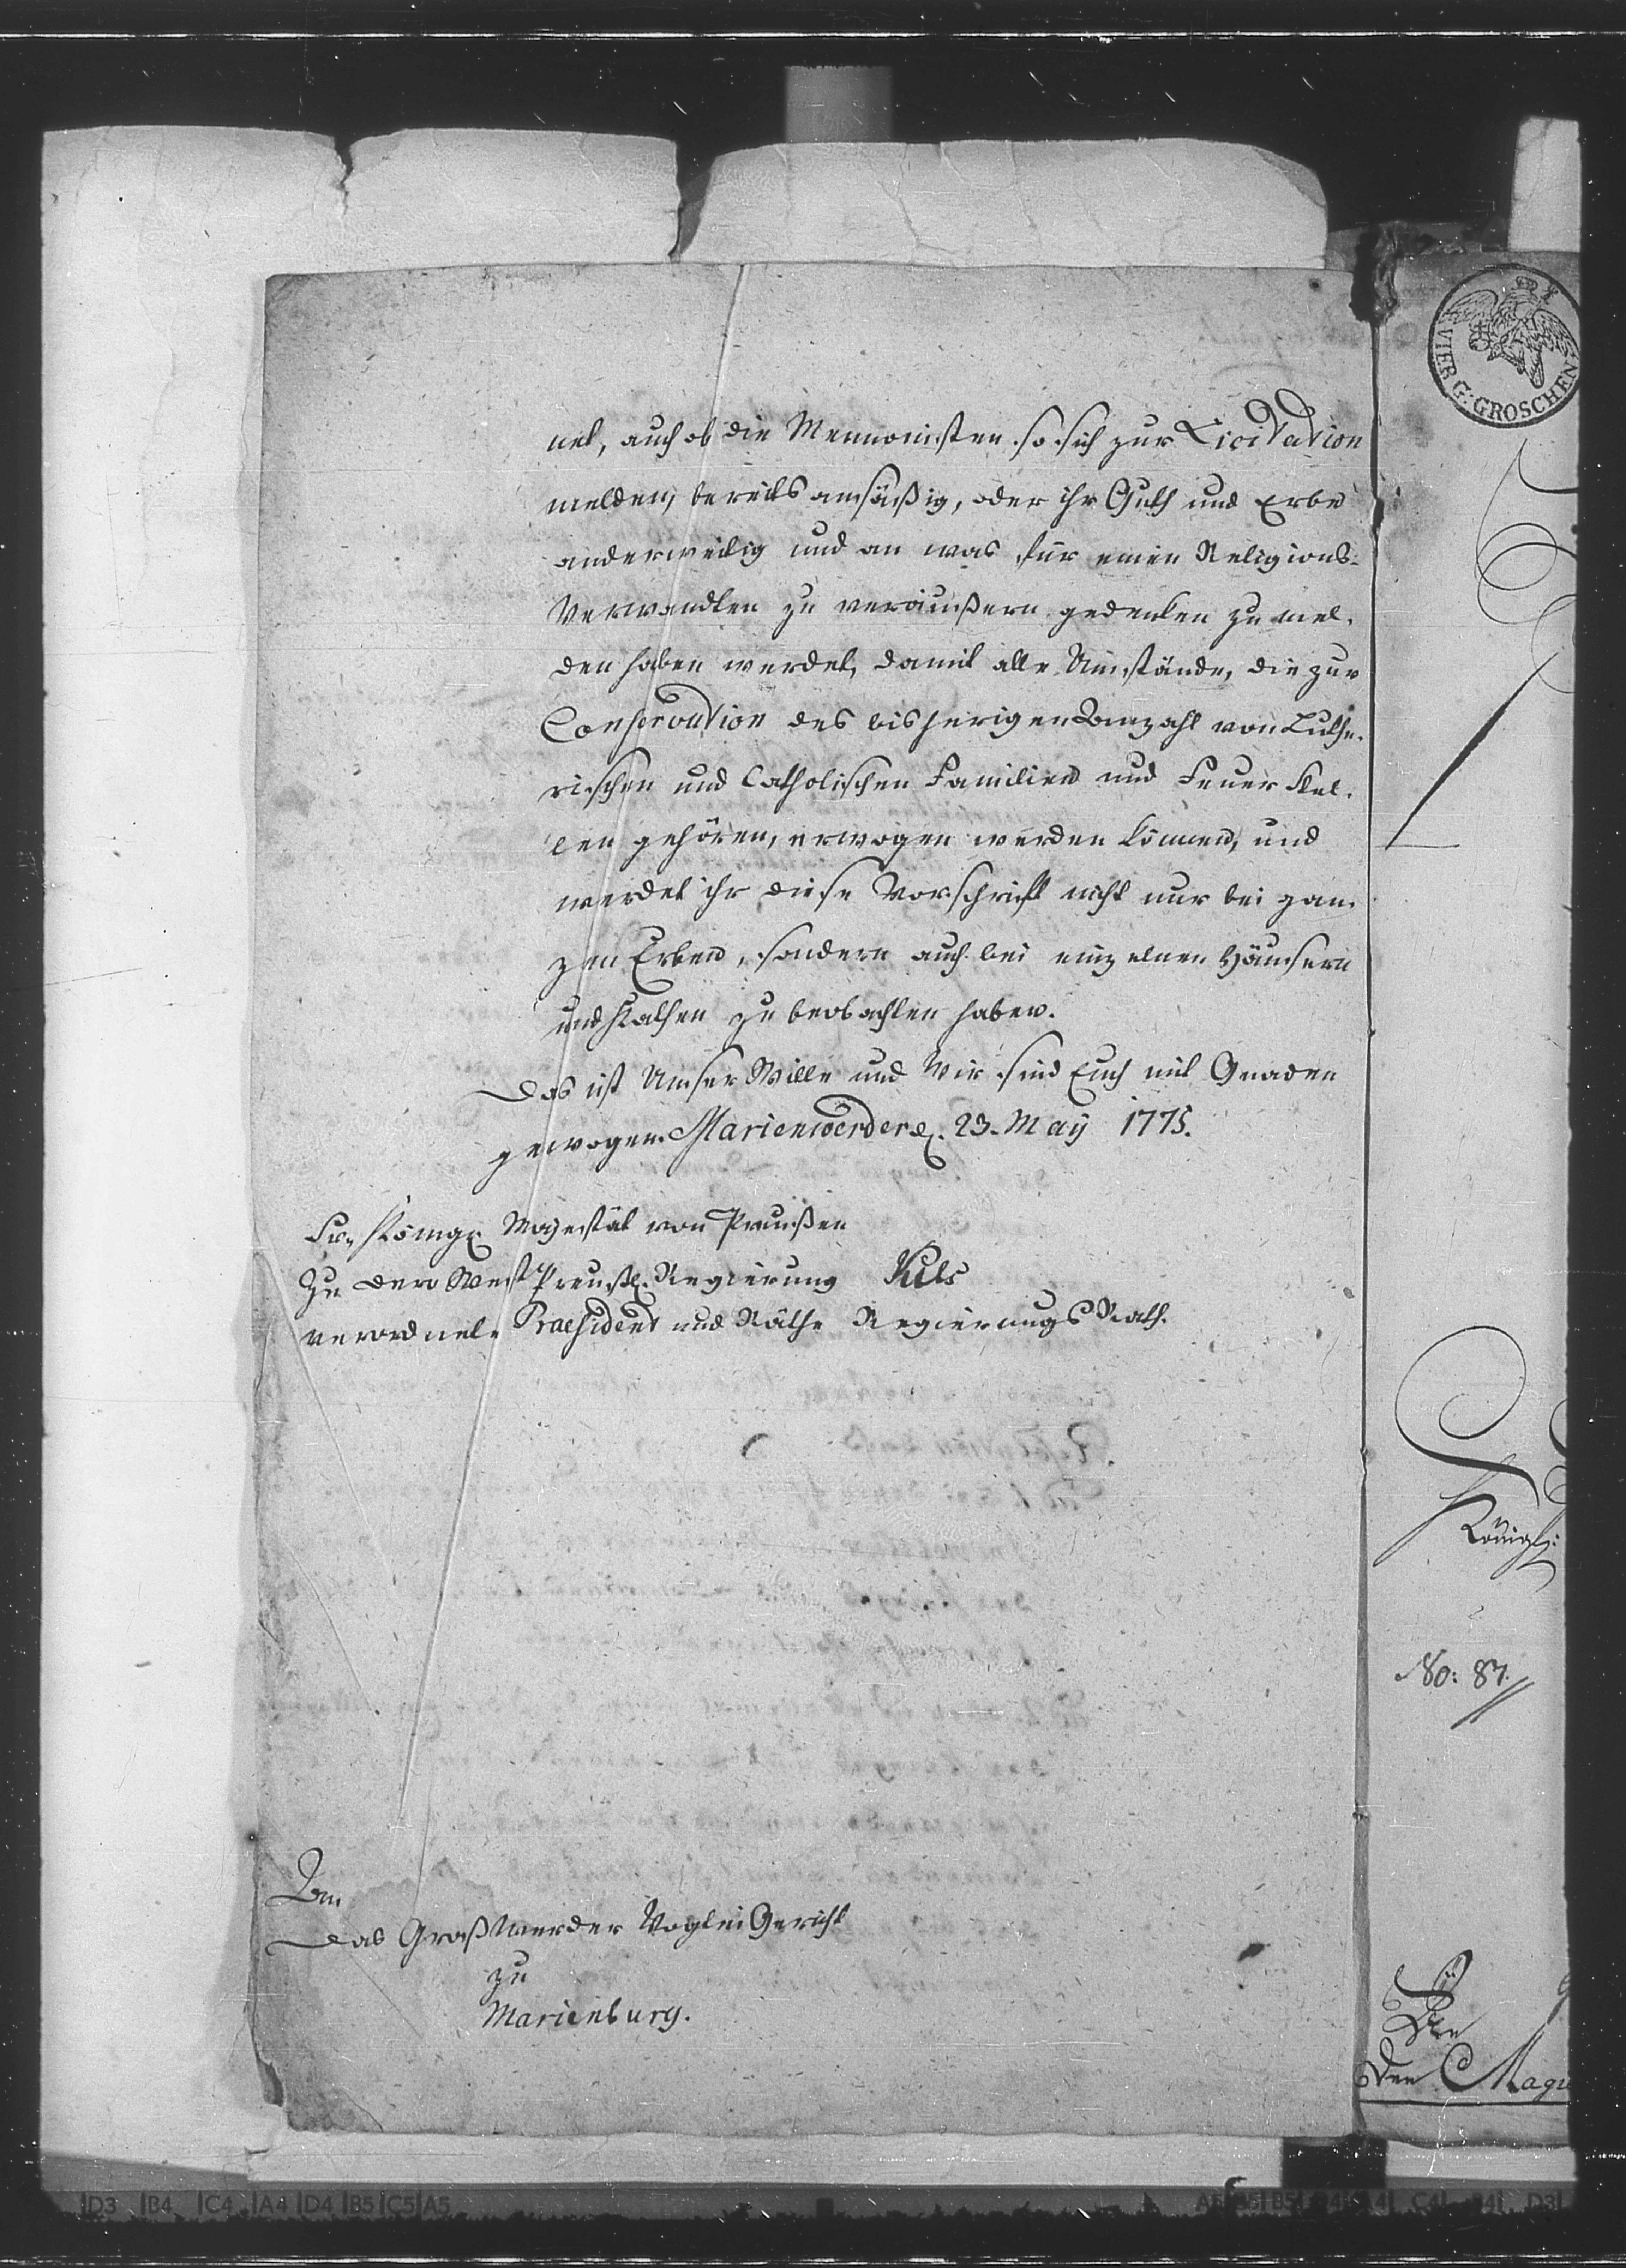 net, auch ob die Mennonisten so sich zur Licitation
melden, bereits ansäßig, oder ihr Guth und Erbe
anderweitig und an was für einen Religions-
Verwandten zu veräußern gedenken zu mel-
den haben werdet, damit alle Umstände, die zur
Conservation der bisherigen Anzahl von Luthe-
rischen und Catholischen Familien und Feuer Stel-
len gehören, erwogen werden können, und
werdet ihr diese Vorschrift nicht nur bei gan-
zen Erben, sondern auch bei einzelnen Häusern
und Kathen zu beobachten haben.
Das ist Unser Wille und Wir sind Euch mit Gnaden
gewogen. Marienwerder d. 23. May 1775.
Sr. Königl. Majestät von Preußen
Zu dero West Preußl. Regierung
verordnete Praesident und Räthe Regierungs Rath.
An
das Groß Werder Vogtei Gericht
zu
Marienburg.
VIER G. GROSCHEN
Königl:
No: 87.
An
den Mag
D3 B4 C4 A4 D4 B5 C5 A5